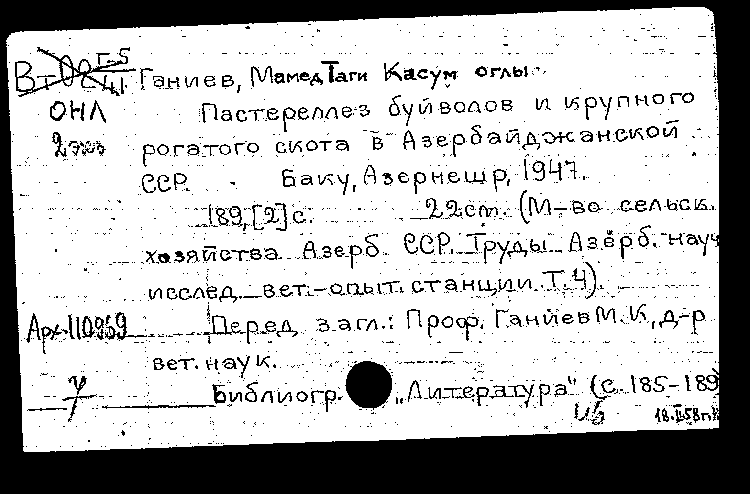 Ганиев, МамедТаги Касум оглы.
ОНЛ Пастереллез буйволов и крупного
2 экз рогатого скота в Азербайджанской
ССР. Баку, Азернешр, 1947.
189,[2]с. 22см. (М-во сельск.
хозяйства Азерб. ССР. Труды Азерб. науч
исслед. вет.-опыт. станции. Т.4).
Арх.110969 Перед загл.: Проф. Ганиев М.К., д-р
вет. наук.
Библиогр. „Литература" (с. 185-189